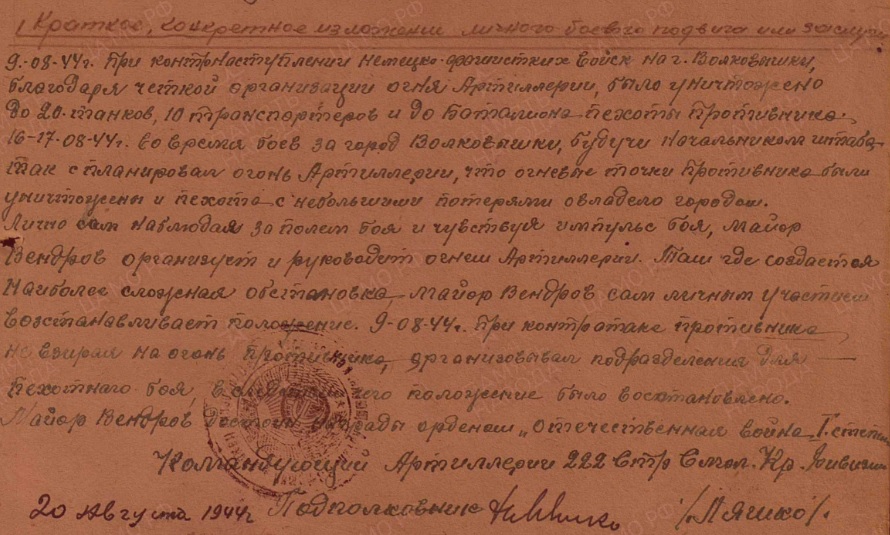 Краткое, конкретное изложение личного боевого подвига или заслуг
9.-08-44г. При контрнаступлении немецко-фашистких войск на г. Волковышки,
благодаря четкой организации огня Артиллерии, было уничтожено
до 20-танков, 10 транспортеров и до Баталиона пехоты Противника.
16-17-08-44г. во время боев за город Волковышки, будучи начальником штаба,
так спланировал огонь Артиллерии, что огневые точки Противника были
уничтожены и пехота с небольшими потерями овладела городом.
Лично сам наблюдая за полем боя и чувствуя импульс боя, майор
Вендров организует и руководит огнем Артиллерии. Там где создается
наиболее сложная обстановка майор Вендров сам личным участием
восстанавливает положение. 9-08-44г. При контратаке противника
не взирая на огонь противника, организовывал подразделения для
пехотнаго боя, в чего положение было востановлено.
Майор Вендров достоин награды орденом „Отечественная война I степени
Командующий Артиллерии 222 Стр Смол. Кр. Дивизии
20 Августа 1944г Подполковник /Ляшко/.